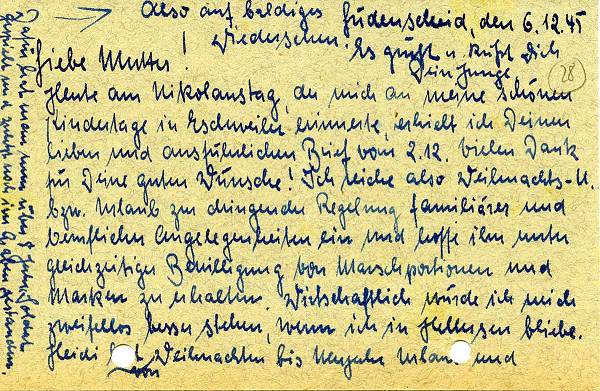 Lüdenscheid, den 6.12.45
Liebe Mutter!
Heute am Nikolaustag, der mich an meine schönen
Kindertage in Eschweiler erinnerte, erhielt ich Deinen
lieben und ausführlichen Brief vom 2.12. Vielen Dank
für Deine guten Wünsche! Ich reiche also Weihnachts-U.
bzw. Urlaub zur dringenden Regelung familiärer und
beruflicher Angelegenheiten ein und hoffe ihn unter
gleichzeitiger Bewilligung von Marschportionen und
Marken zu erhalten. Wirtschaftlich würde ich mich
zweifellos besser stehen, wenn ich in Hellersen bliebe.
Heidi hat von Weihnachten bis Neujahr Urlaub und
Also auf baldiges
Wiedersehen. Es grüßt u. küßt Dich
Dein Junge
28
Dafür hat man nun über 8 Jahre Soldat
gespielt und zuletzt noch im Graben gestanden.